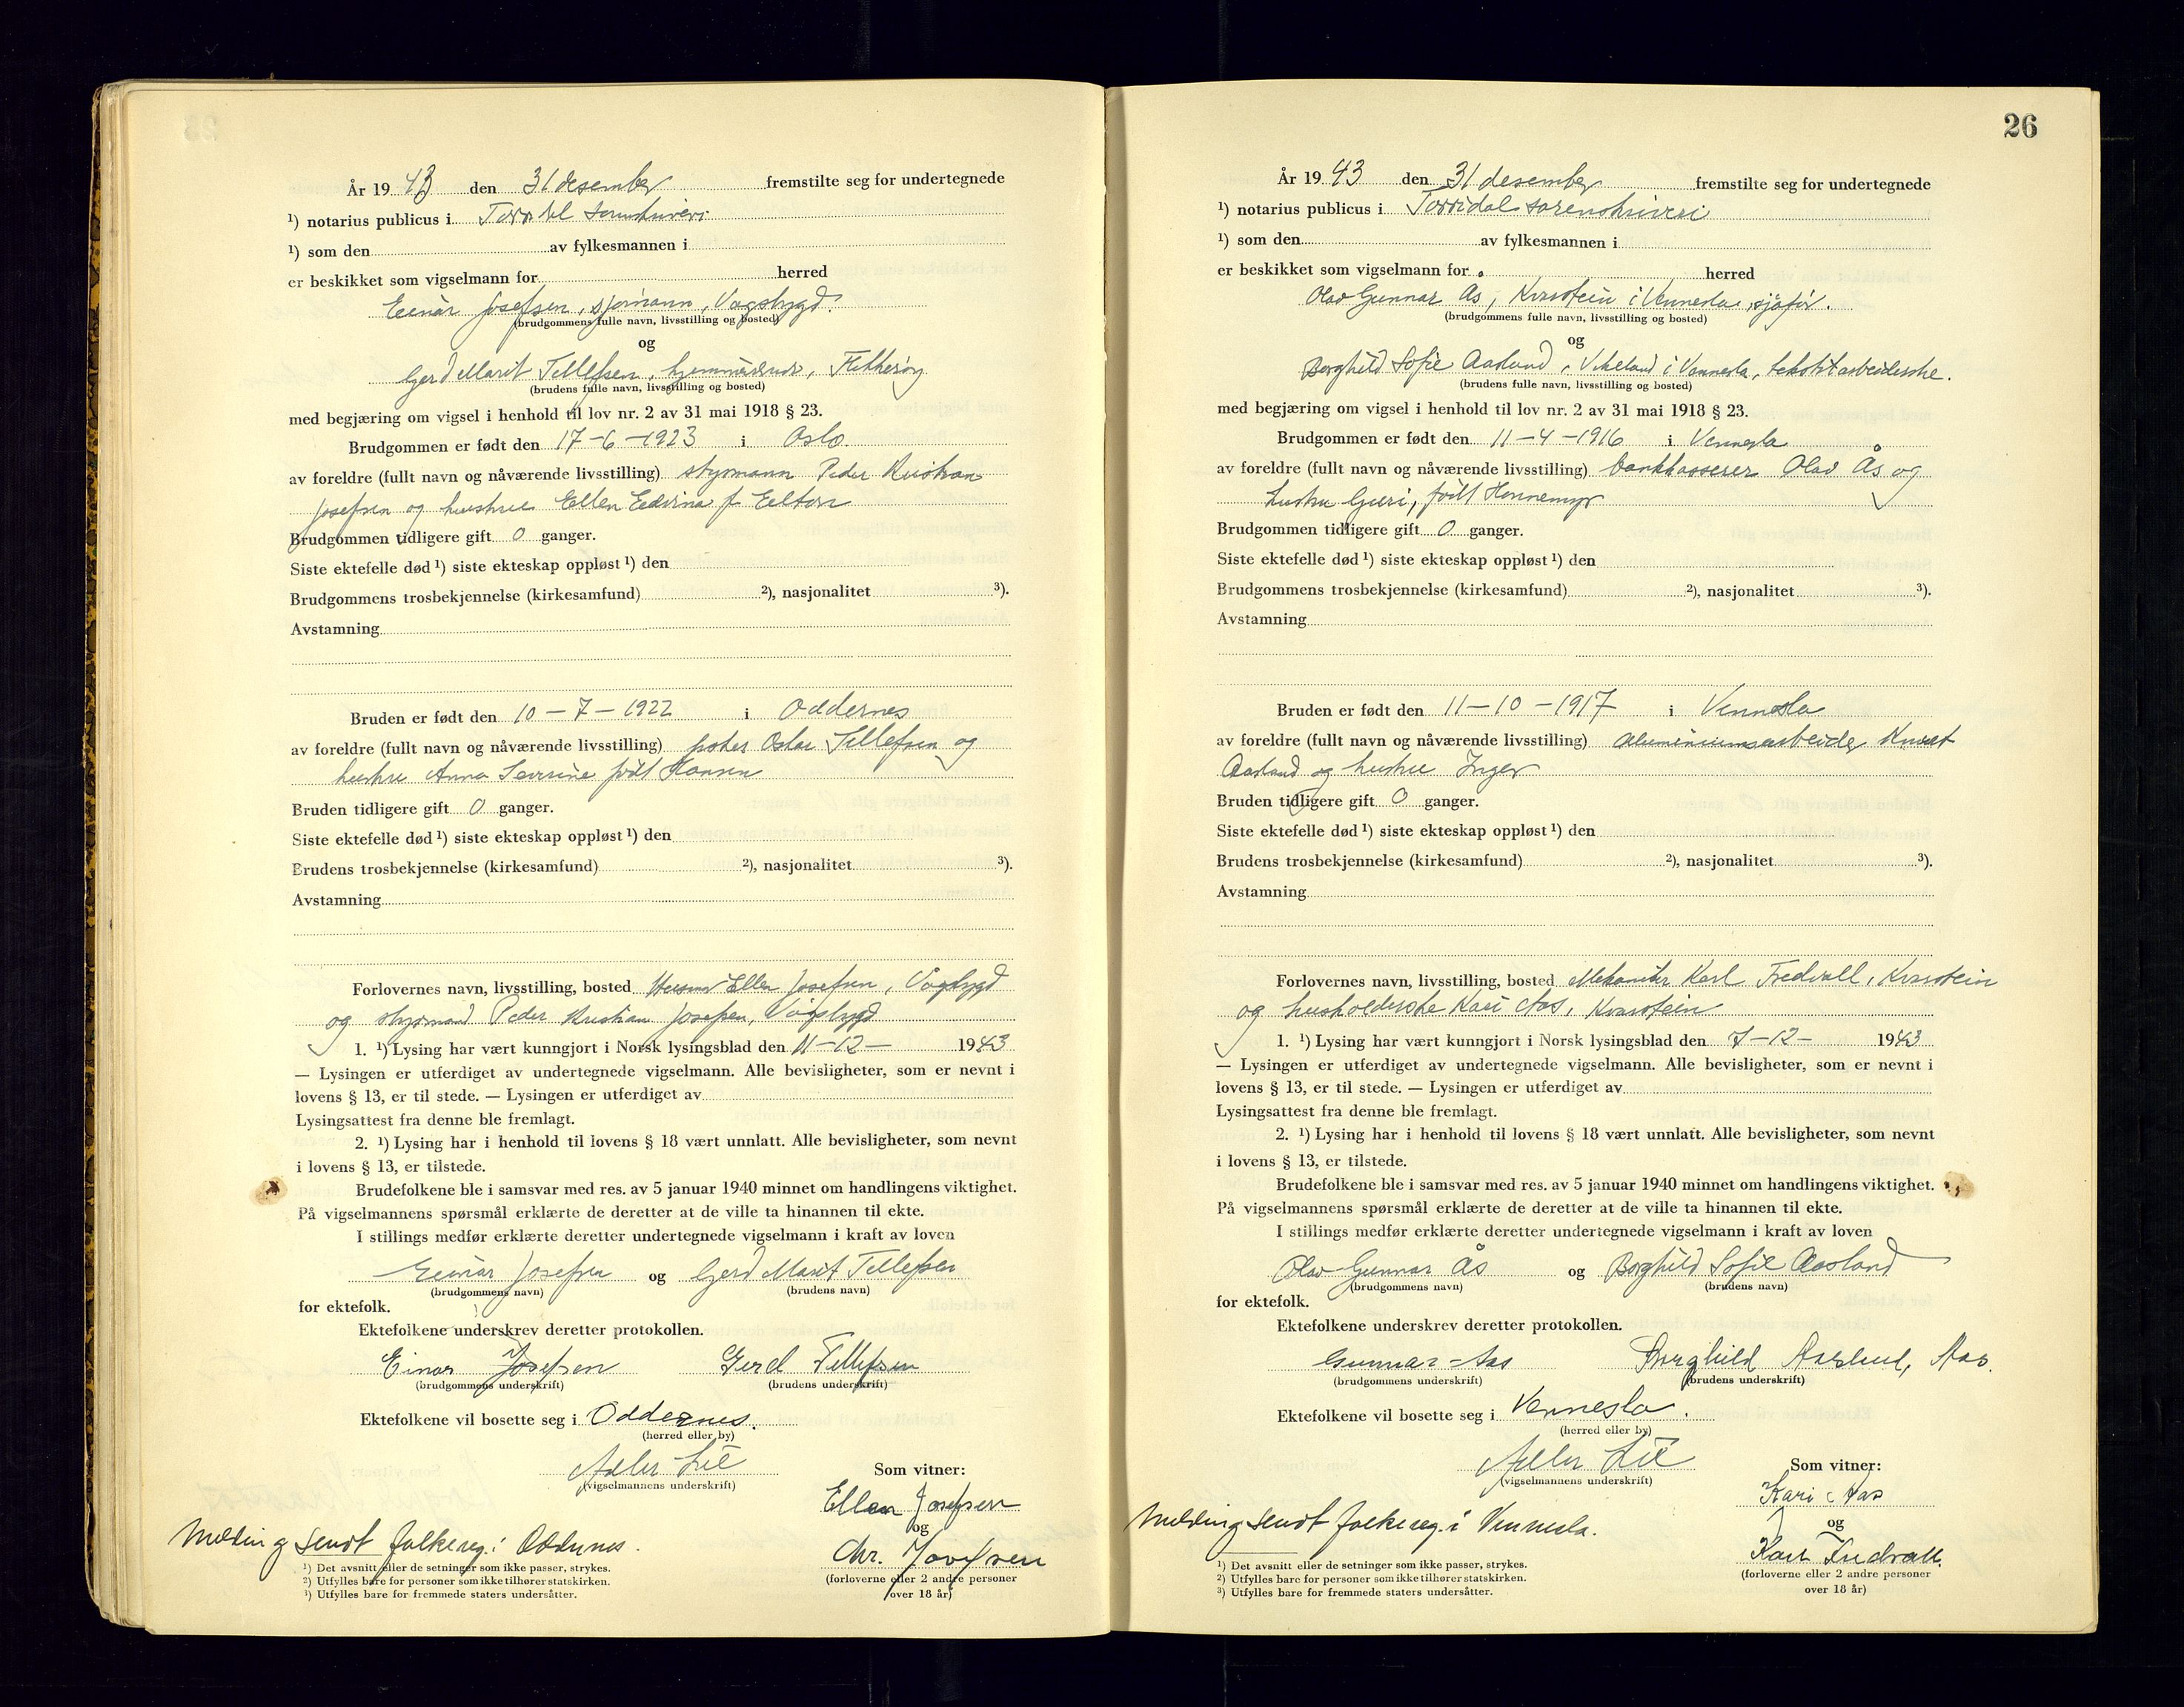 År 19 43 den 31 desember fremstilte seg for undertegnede
¹) notarius publicus i Torridal sorenskriveri
¹) som den av fylkesmannen i
er beskikket som vigselmann for herred
Einar Josefsen, sjømann, Vågsbygd.
(brudgommens fulle navn, livsstilling og bosted)
og
Gerd Marit Tellefsen, hjemmeværende, Flekkerøy
(brudens fulle navn, livsstilling og bosted)
med begjæring om vigsel i henhold til lov nr. 2 av 31 mai 1918 § 23.
Brudgommen er født den 17-6-1923 i Oslo.
av foreldre (fullt navn og nåværende livsstilling) styrmann Peder Kristian
Josefsen og hustru Ellen Edvina f.
Brudgommen tidligere gift 0 ganger.
Siste ektefelle død ¹) siste ekteskap oppløst ¹) den
Brudgommens trosbekjennelse (kirkesamfund) ²), nasjonalitet ³).
Avstamning
Bruden er født den 10-7-1922 i Oddernes
av foreldre (fullt navn og nåværende livsstilling) Oskar Tellefsen og
hustru Anna Severine født Hansen
Bruden tidligere gift 0 ganger.
Siste ektefelle død ¹) siste ekteskap oppløst ¹) den
Brudens trosbekjennelse (kirkesamfund) ²), nasjonalitet ³).
Avstamning
Forlovernes navn, livsstilling, bosted Ellen Josefsen, Vågsbygd
og styrmand Peder Kristian Josefsen, Vågsbygd
1. ¹) Lysing har vært kunngjort i Norsk lysingsblad den 11-12- 1943
— Lysingen er utferdiget av undertegnede vigselmann. Alle bevisligheter, som er nevnt i
lovens § 13, er til stede. — Lysingen er utferdiget av
Lysingsattest fra denne ble fremlagt.
2. ¹) Lysing har i henhold til lovens § 18 vært unnlatt. Alle bevisligheter, som nevnt
i lovens § 13, er tilstede.
Brudefolkene ble i samsvar med res. av 5 januar 1940 minnet om handlingens viktighet.
På vigselmannens spørsmål erklærte de deretter at de ville ta hinannen til ekte.
I stillings medfør erklærte deretter undertegnede vigselmann i kraft av loven
Einar Josefsen og Gerd Marit Tellefsen
(brudgommens navn) (brudens navn)
for ektefolk.
Ektefolkene underskrev deretter protokollen.
Einar Josefsen Gerd Tellefsen
(brudgommens underskrift) (brudens underskrift)
Ektefolkene vil bosette seg i Oddernes.
(herred eller by)
Adler Lie
(vigselmannens underskrift)
Som vitner:
Ellen Josefsen
og
Chr. Josefsen
(forloverne eller 2 andre personer
over 18 år)
Melding sendt folkereg. i Oddernes.
¹) Det avsnitt eller de setninger som ikke passer, strykes.
²) Utfylles bare for personer som ikke tilhører statskirken.
³) Utfylles bare for fremmede staters undersåtter.
26
År 19 43 den 31 desember fremstilte seg for undertegnede
¹) notarius publicus i Torridal sorenskriveri
¹) som den av fylkesmannen i
er beskikket som vigselmann for herred
Olav Gunnar Ås, Kvarstein i Vennesla, sjåfør.
(brudgommens fulle navn, livsstilling og bosted)
og
Borghild Sofie Aasland, Vikeland i Vennesla, tekstilarbeiderske.
(brudens fulle navn, livsstilling og bosted)
med begjæring om vigsel i henhold til lov nr. 2 av 31 mai 1918 § 23.
Brudgommen er født den 11-4-1916 i Vennesla
av foreldre (fullt navn og nåværende livsstilling) bankkasserer Olav Ås og
hustru Guri, født Honnemyr
Brudgommen tidligere gift 0 ganger.
Siste ektefelle død ¹) siste ekteskap oppløst ¹) den
Brudgommens trosbekjennelse (kirkesamfund) ²), nasjonalitet ³).
Avstamning
Bruden er født den 11-10-1917 i Vennesla
av foreldre (fullt navn og nåværende livsstilling) aluminiumsarbeider Knut
Aasland og hustru Inger
Bruden tidligere gift 0 ganger.
Siste ektefelle død ¹) siste ekteskap oppløst ¹) den
Brudens trosbekjennelse (kirkesamfund) ²), nasjonalitet ³).
Avstamning
Forlovernes navn, livsstilling, bosted Mekaniker Karl Fredvall, Kvarstein
og husholderske Kari Aas, Kvarstein
1. ¹) Lysing har vært kunngjort i Norsk lysingsblad den 7-12- 1943
— Lysingen er utferdiget av undertegnede vigselmann. Alle bevisligheter, som er nevnt i
lovens § 13, er til stede. — Lysingen er utferdiget av
Lysingsattest fra denne ble fremlagt.
2. ¹) Lysing har i henhold til lovens § 18 vært unnlatt. Alle bevisligheter, som nevnt
i lovens § 13, er tilstede.
Brudefolkene ble i samsvar med res. av 5 januar 1940 minnet om handlingens viktighet.
På vigselmannens spørsmål erklærte de deretter at de ville ta hinannen til ekte.
I stillings medfør erklærte deretter undertegnede vigselmann i kraft av loven
Olav Gunnar Ås og Borghild Sofie Aasland
(brudgommens navn) (brudens navn)
for ektefolk.
Ektefolkene underskrev deretter protokollen.
Gunnar Aas Borghild Aasland, Aas.
(brudgommens underskrift) (brudens underskrift)
Ektefolkene vil bosette seg i Vennesla.
(herred eller by)
Adler Lie
(vigselmannens underskrift)
Som vitner:
Kari Aas
og
Karl Fredvall.
(forloverne eller 2 andre personer
over 18 år)
Melding sendt folkereg. i Vennesla.
¹) Det avsnitt eller de setninger som ikke passer, strykes.
²) Utfylles bare for personer som ikke tilhører statskirken.
³) Utfylles bare for fremmede staters undersåtter.